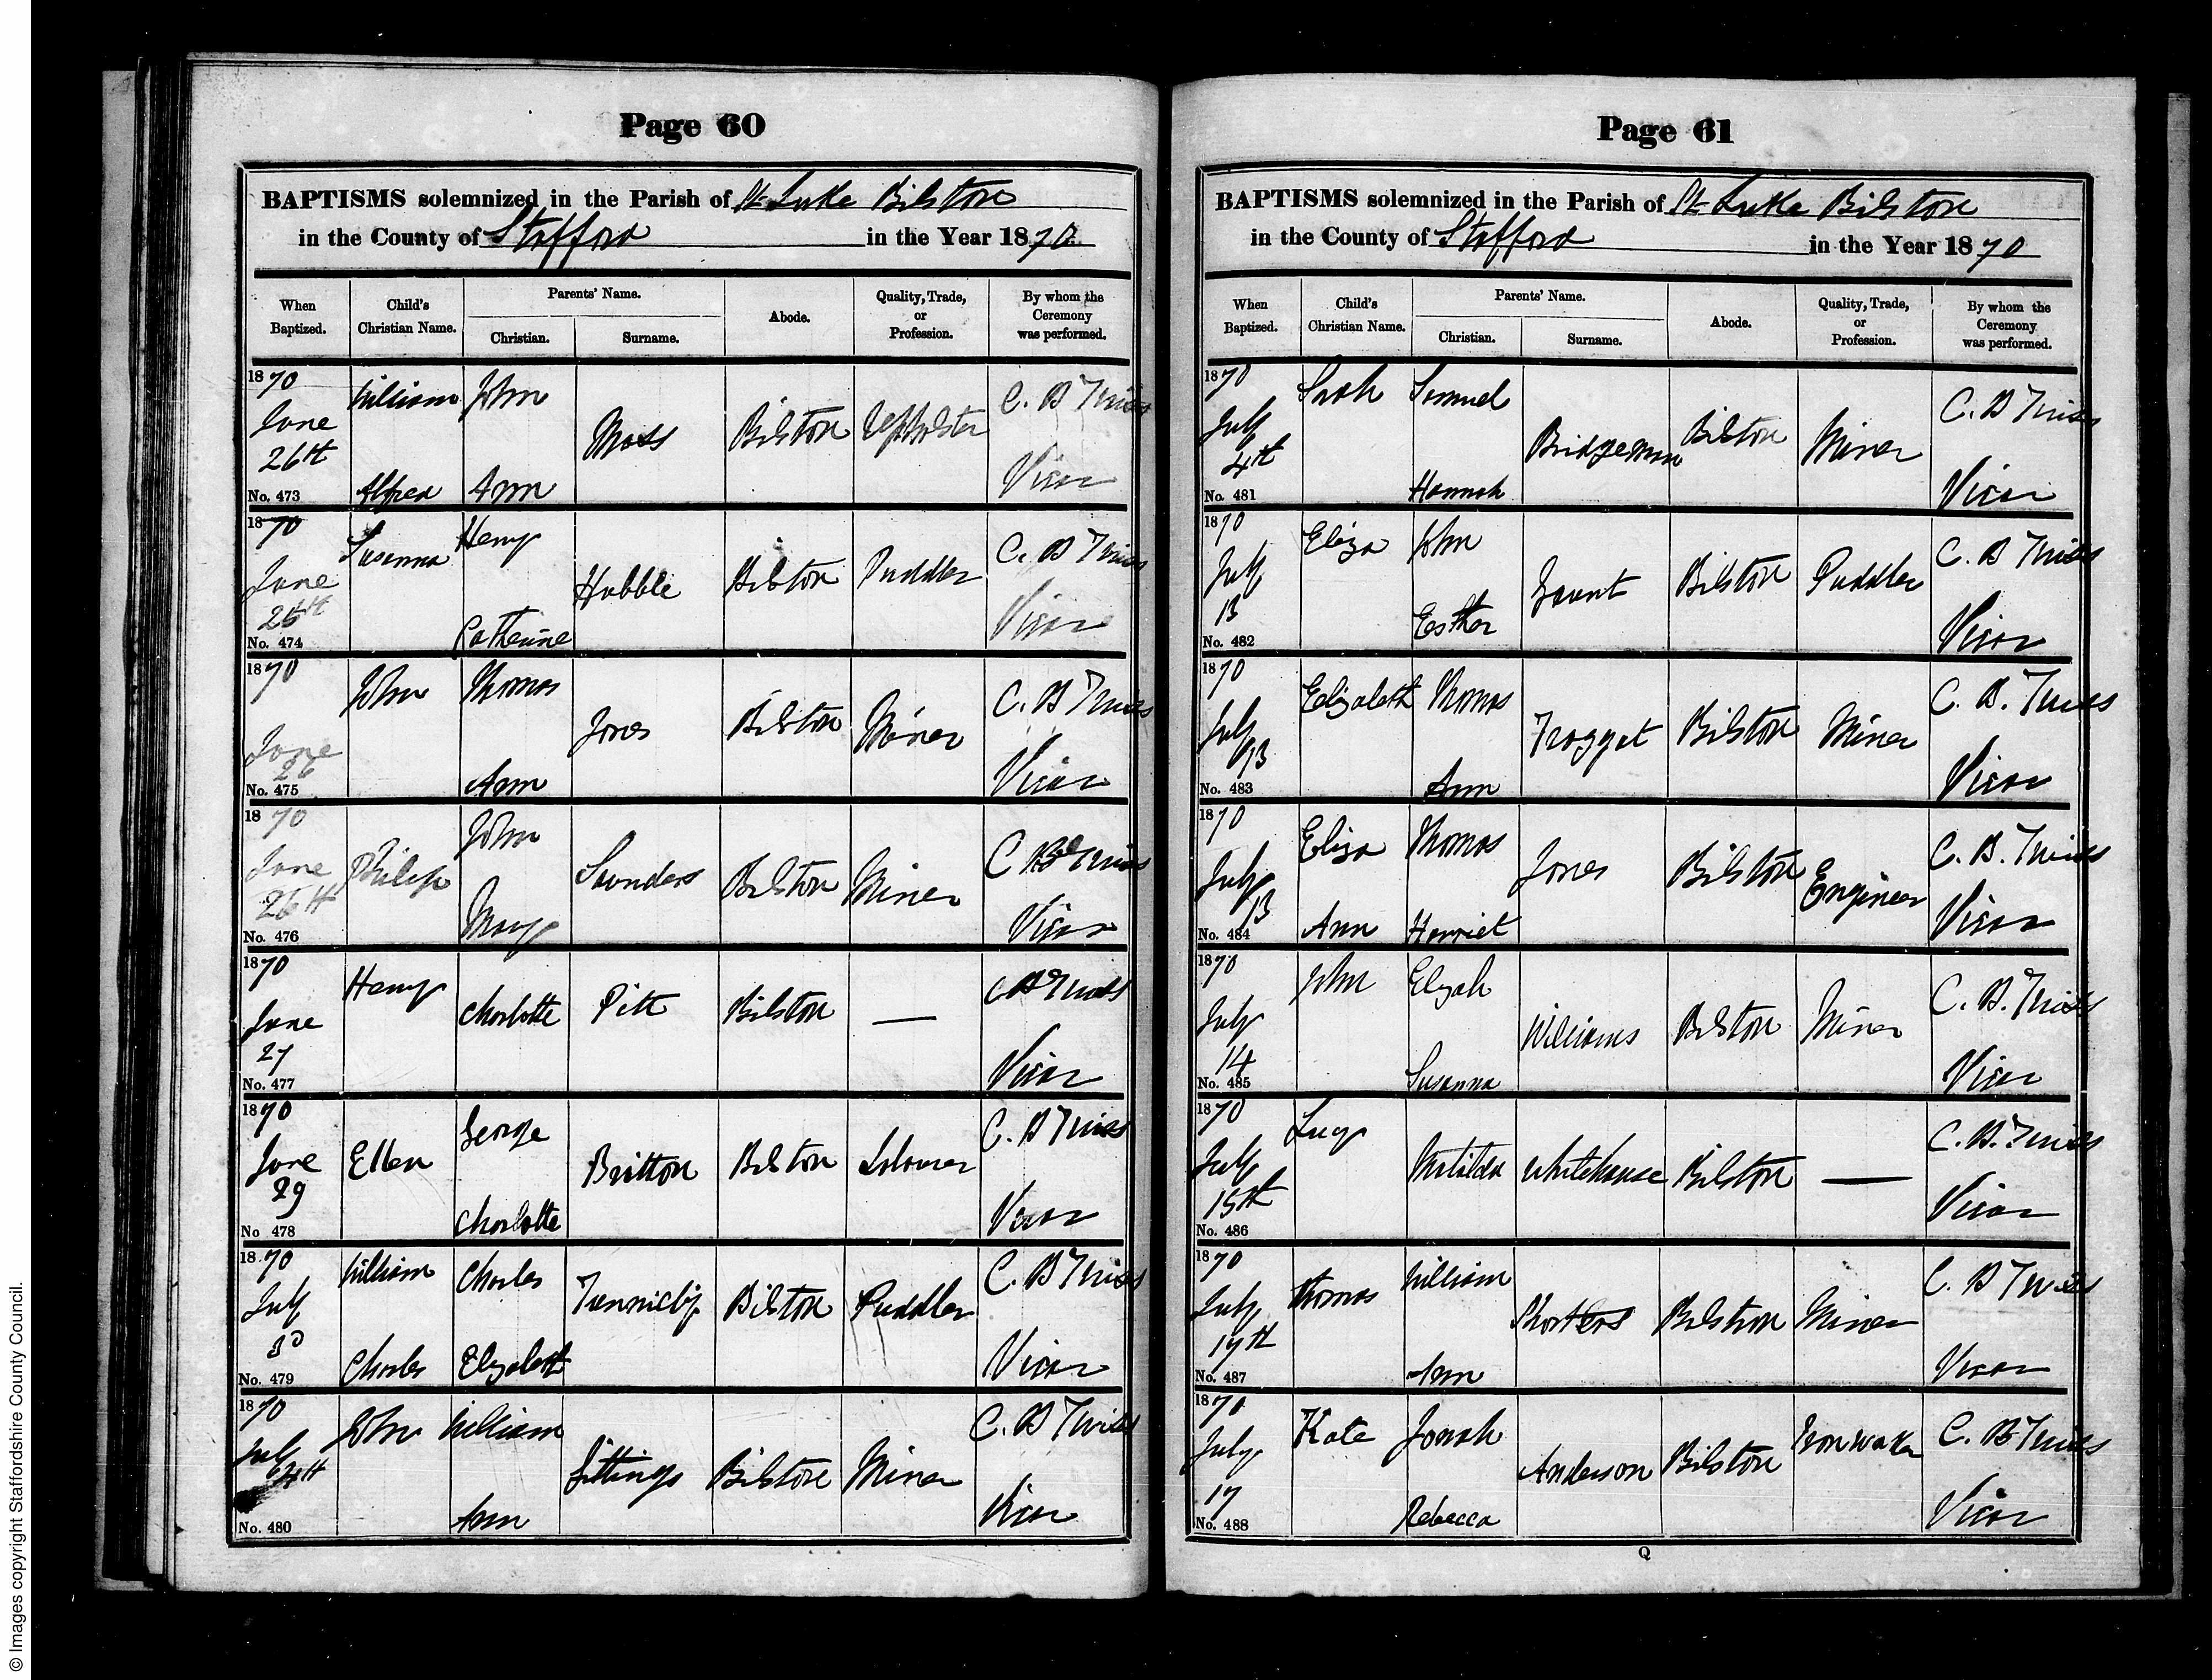 Page 60
BAPTISMS solemnized in the Parish of St Luke Bilston
in the County of Stafford in the Year 1870
When Baptized. Child's Christian Name. Parents' Name. Christian. Surname. Abode. Quality, Trade, or Profession. By whom the Ceremony was performed.
1870 William John C. B Twiss
June 26th Moss Bilston Upholster
No. 473 Alfred Ann Vicar
1870 Susanna Henry C. B Twiss
June 26th Hubble Bilston Puddler
No. 474 Catherine Vicar
1870 John Thomas C. B Twiss
June 26 Jones Bilston Miner
No. 475 Ann Vicar
1870 John C B Twiss
June 26th Philip Saunders Bilston Miner
No. 476 Mary Vicar
1870 Henry C B Twiss
June 27 Charlotte Pitt Bilston —
No. 477 Vicar
1870 George C. B Twiss
June 29 Ellen Britton Bilston Labourer
No 478 Charlotte Vicar
1870 William Charles C. B Twiss
July 3d Bilston Puddler
No. 479 Charles Elizabeth Vicar
1870 John William C. B Twiss
July 4th Gittings Bilston Miner
No. 480 Ann Vicar
Page 61
BAPTISMS solemnized in the Parish of St Luke Bilston
in the County of Stafford in the Year 1870
When Baptized. Child's Christian Name. Parents' Name. Christian. Surname. Abode. Quality, Trade, or Profession. By whom the Ceremony was performed.
1870 Sarah Samuel C. B Twiss
July 4th Bridgeman Bilston Miner
No. 481 Hannah Vicar
1870 Eliza John C. B Twiss
July 13 Gaunt Bilston Puddler
No. 482 Esther Vicar
1870 Elizabeth Thomas C. B. Twiss
July 13 Frogget Bilston Miner
No. 483 Ann Vicar
1870 Eliza Thomas C. B. Twiss
July 13 Jones Bilston Engineer
No. 484 Ann Harriet Vicar
1870 John Elijah C. B. Twiss
July 14 Williams Bilston Miner
No. 485 Susanna Vicar
1870 Lucy C. B. Twiss
July 15th Matilda Whitehouse Bilston —
No. 486 Vicar
1870 Thomas William C. B Twiss
July 17th Bilston Miner
No. 487 Ann Vicar
1870 Kate Jonah Ironworker C. B Twiss
July 17 Anderson Bilston
No. 488 Rebecca Vicar
Q
© Images copyright Staffordshire County Council.